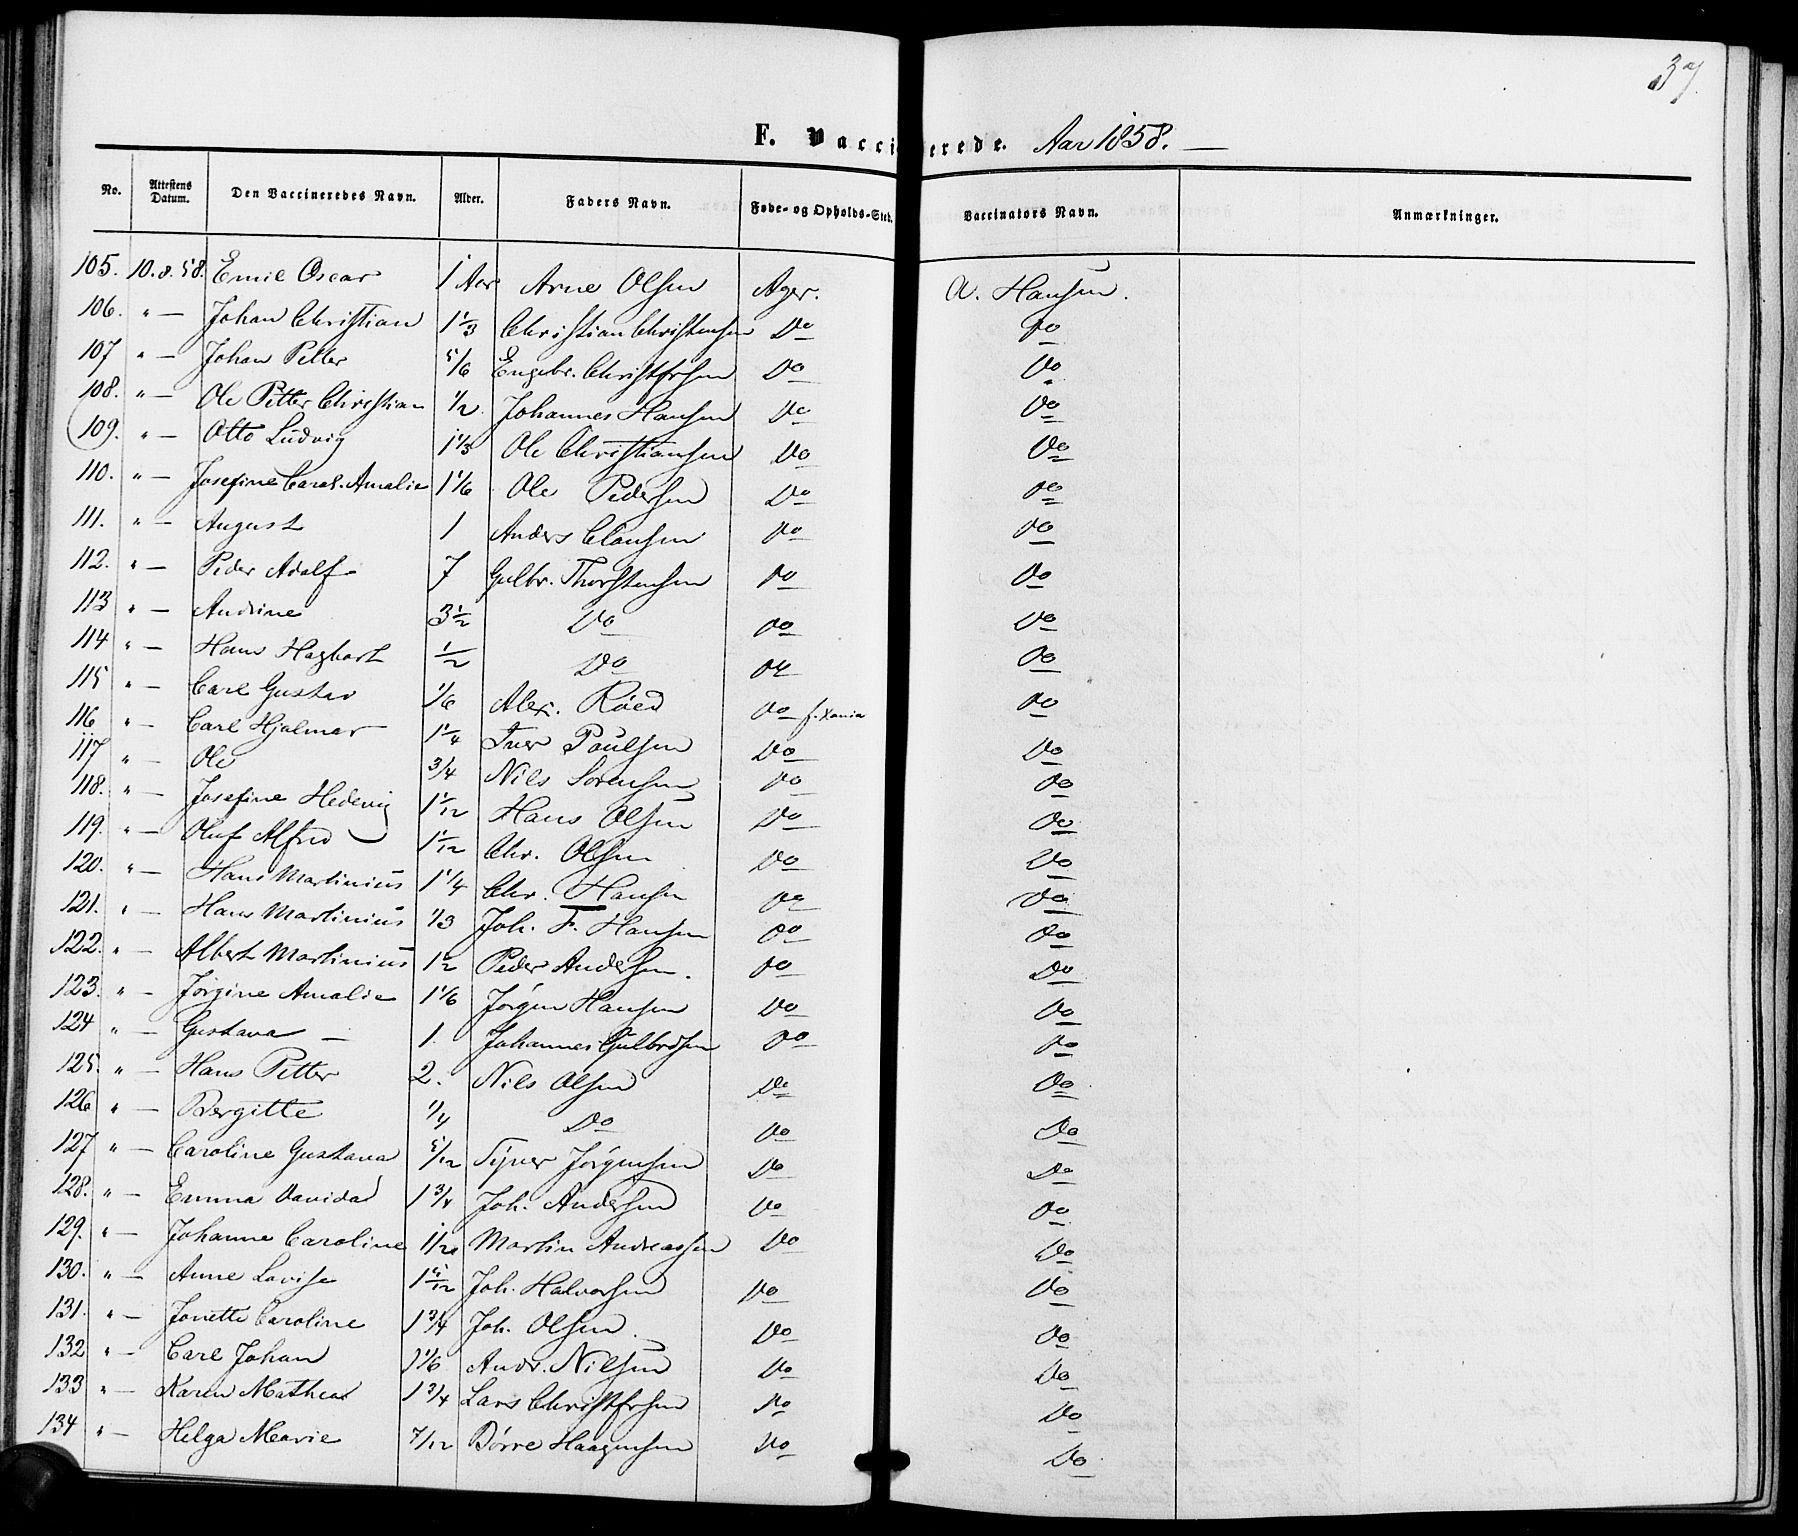 37.
F. Vaccinerede. Aar 1858. —
No. Attestens Datum. Den Vaccineredes Navn. Alder. Faders Navn. Føde- og Opholds-Sted. Vaccinators Navn. Anmærkninger.
105. 10.8.58. Emil Oscar 1 Aar Arne Olsen Ager. A. Hansen.
106. " — Johan Christian 1 1/3 Christian Christensen Do Do
107 " — Johan Petter 5/6 Engebr. Christofrsen Do Do
108. " — Ole Petter Christian 1/2. Johannes Hansen Do Do
109. " — Otto Ludvig 1 1/3 Ole Christiansen Do Do
110. " — Josefine Carol. Amalie 1 1/6 Ole Pedersen Do Do
111. " — August 1 Anders Clausen Do Do
112. " — Peder Adolf 7 Gulbr. Thorstensen Do Do
113 " — Andrine 3 1/2 Do Do Do
114 " — Hans Hagbart 1/2 Do Do Do
115 " — Carl Gustav 1/6 Alex. Röed Do f. Xania Do
116 " — Carl Hjalmar 1 1/4 Iver Paulsen Do Do
117 " — Ole 3/4 Nils Sorensen Do Do
118. " — Josefine Hedevig 1 1/12 Hans Olsen Do Do
119. " — Oluf Alfred 1 1/12 Chr. Olsen Do Do
120. " — Hans Martinius 1 1/4 Chr. Hansen Do Do
121. " — Hans Martinius 1/3 Joh. F. Hansen Do Do
122. " — Albert Martinius 1/2 Peder Andersen. Do Do
123. " — Jörgine Amalie 1 1/6 Jörgen Hansen Do Do
124 " — Gustava — 1. Johannes Gulbrdsen Do Do
125. " — Hans Petter 2. Nils Olsen Do Do
126 " — Bergitte 1/4 Do Do Do
127 " — Caroline Gustava 5/12 Syver Jörgensen Do Do
128. " — Emma Davida 1 3/4 Joh. Andersen Do Do
129. " — Johanne Caroline 1/2 Martin Andreassen Do Do
130. " — Anne Lovise 1 5/12 Joh. Halvorsen Do Do
131. " — Jonette Caroline 1 3/4 Joh. Olsen Do Do
132 " — Carl Johan 1 1/6 Andr. Nilsen Do Do
133 " — Karen Mathea 1 3/4 Lars Christofrsen Do Do
134 " — Helga Mearie 7/12 Börre Haagensen Do Do